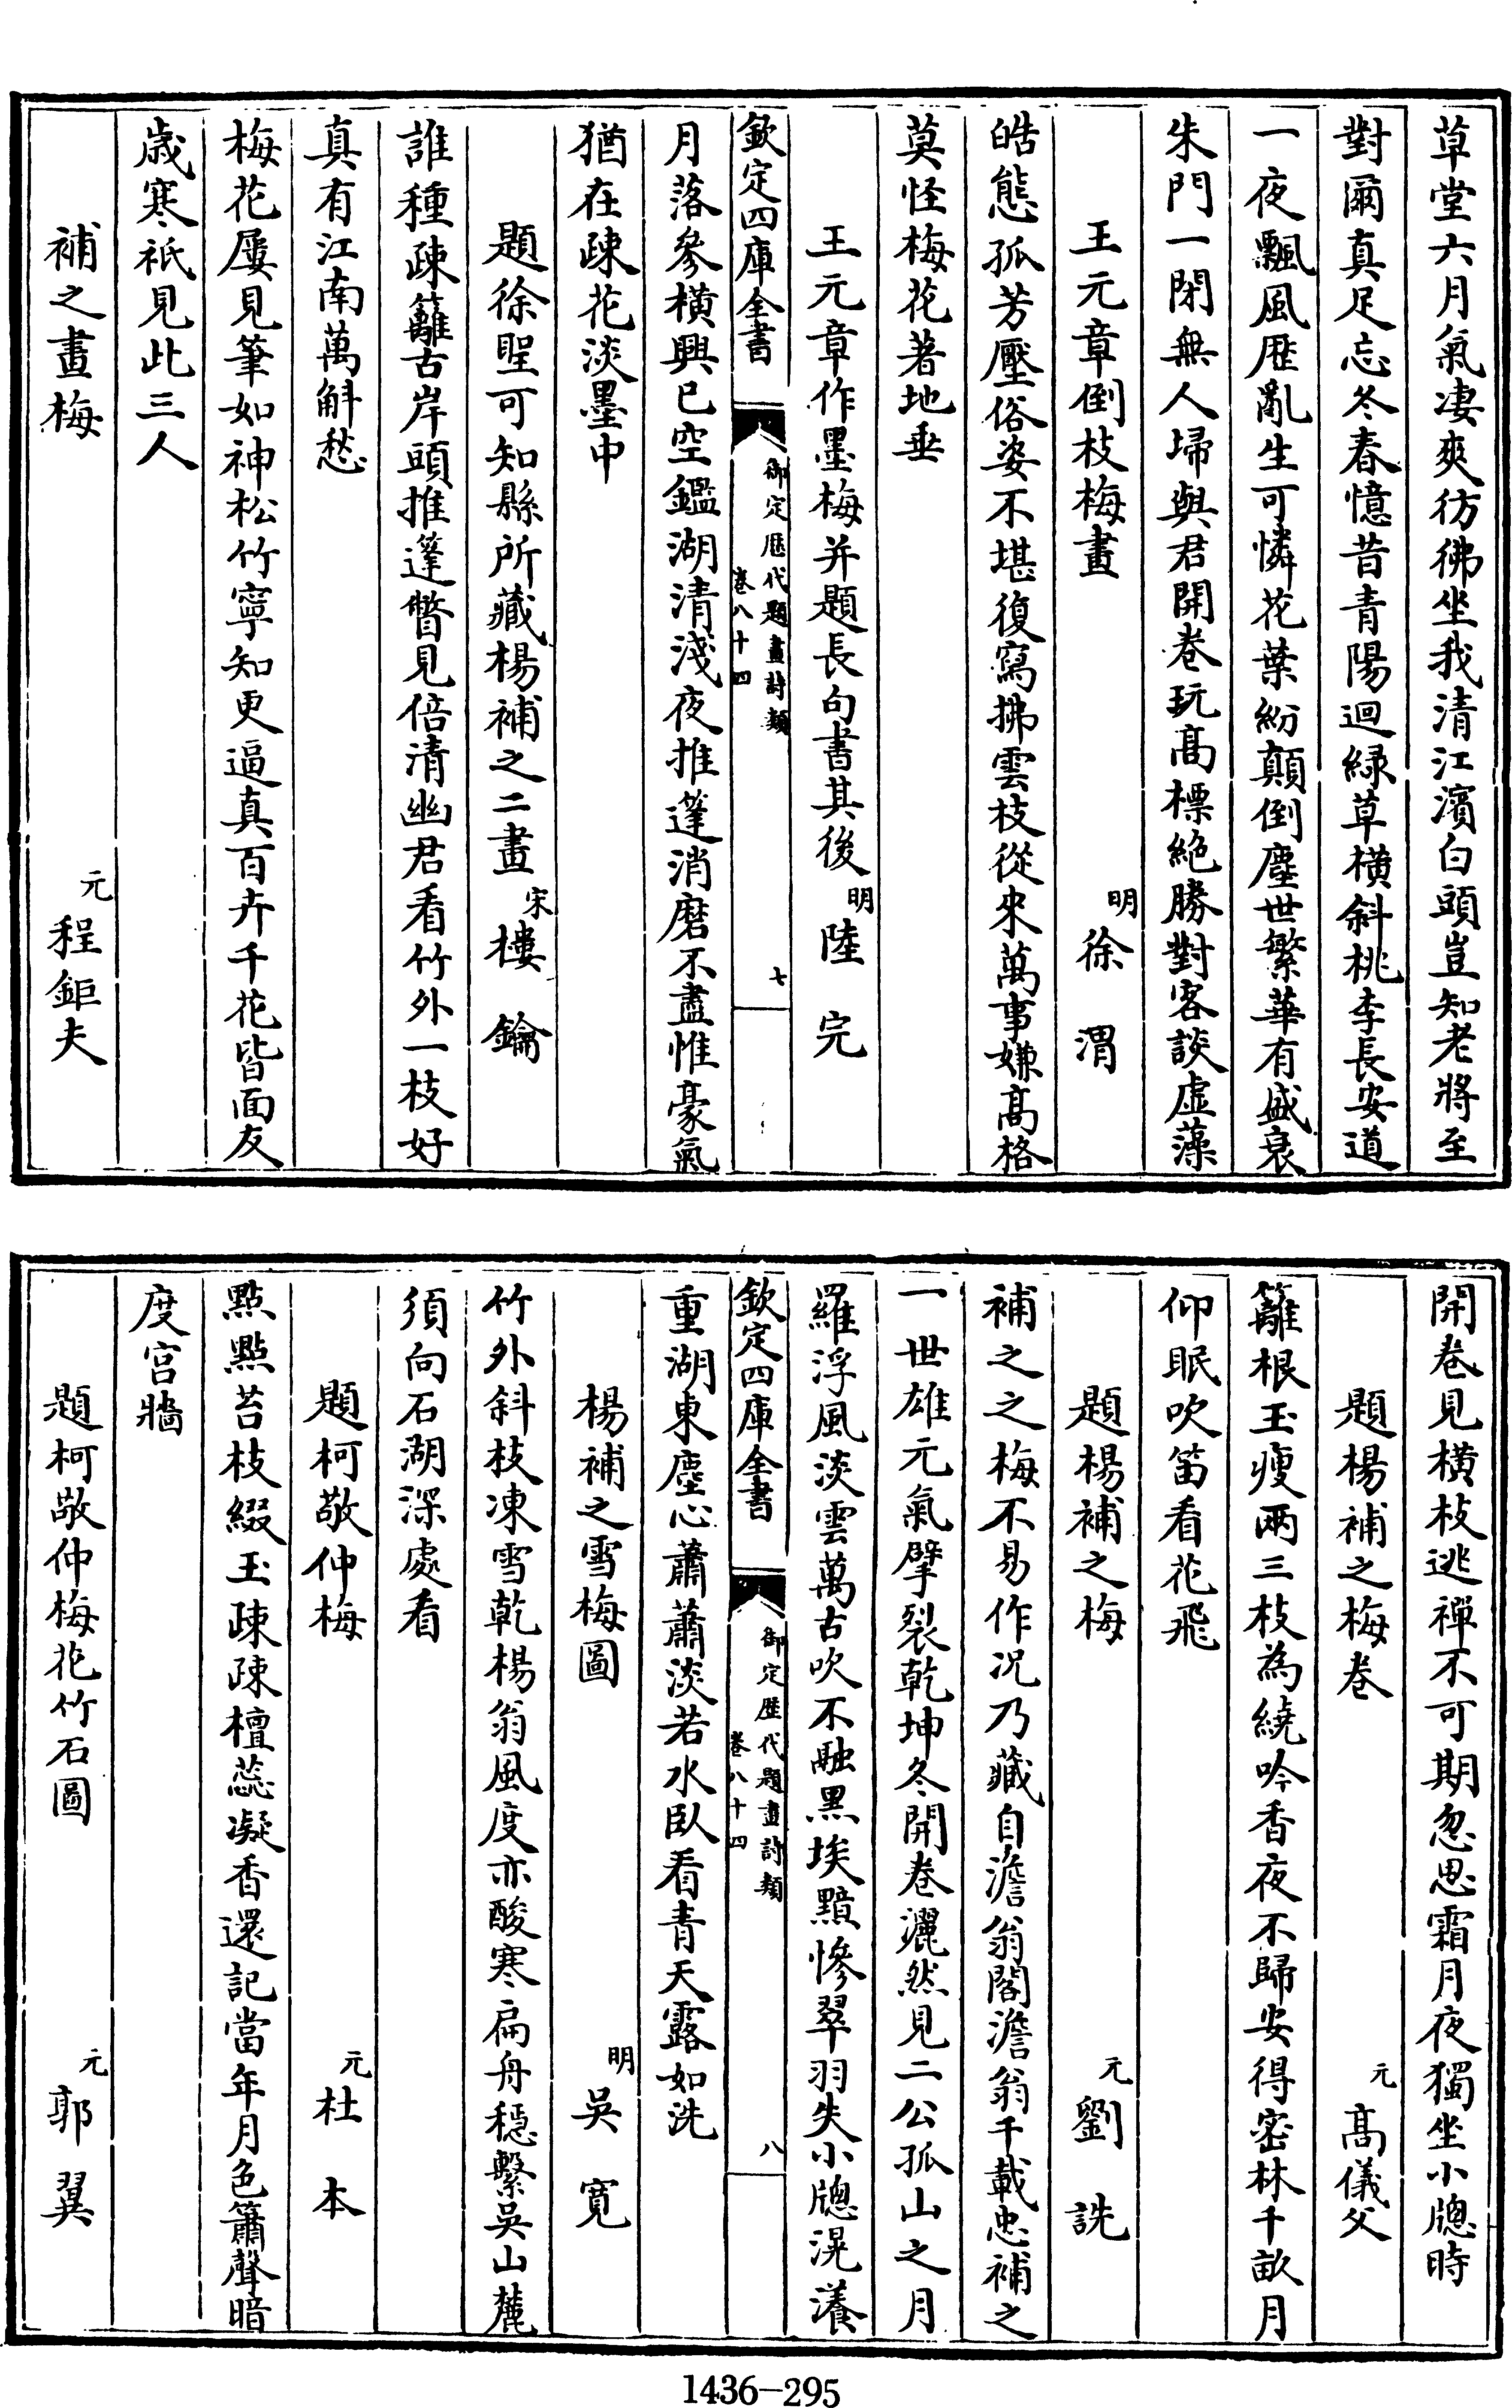 草堂六月氣凄爽彷彿坐我清江濱白頭豈知老將至
對爾真足忘冬春憶昔青陽迴緑草橫斜桃李長安道
一夜飄風歴亂生可憐花葉紛顛倒塵世繁華有盛衰
朱門一閉無人埽與君開卷玩髙標絶勝對客談虛藻
王元章倒枝梅畫 明徐渭
皓態孤芳壓俗姿不堪復寫拂雲枝從來萬事嫌髙格
莫怪梅花著地垂
王元章作墨梅并題長句書其後 明陸完
欽定四庫全書 御定歴代題畫詩類 卷八十四 七
月落參橫興已空鑑湖清淺夜推篷消磨不盡惟豪氣
猶在疎花淡墨中
題徐聖可知縣所藏楊補之二畫 宋樓鑰
誰種疎籬古岸頭推篷瞥見倍清幽君看竹外一枝好
真有江南萬斛愁
梅花屢見筆如神松竹寧知更逼真百卉千花皆面友
歳寒祇見此三人
補之畫梅 元程鉅夫
開卷見橫枝逃禪不可期忽思霜月夜獨坐小牕時
題楊補之梅卷 元髙儀父
籬根玉瘦兩三枝為繞吟香夜不歸安得密林千畝月
仰眠吹笛看花飛
題楊補之梅 元劉詵
補之之梅不易作况乃藏自澹翁閣澹翁千載忠補之
一世雄元氣擘裂乾坤冬開卷灑然見二公孤山之月
羅浮風淡雲萬古吹不融黒埃黯慘翠羽失小牕滉瀁
欽定四庫全書 御定歴代題畫詩類 卷八十四 八
重湖東塵心蕭蕭淡若水臥看青天露如洗
楊補之雪梅圖 明吳寛
竹外斜枝凍雪乾楊翁風度亦酸寒扁舟穩繫吳山麓
須向石湖深處看
題柯敬仲梅 元杜本
點點苔枝綴玉疎疎檀蕊凝香還記當年月色簫聲暗
度宫牆
題柯敬仲梅花竹石圖 元郭翼
1436-295